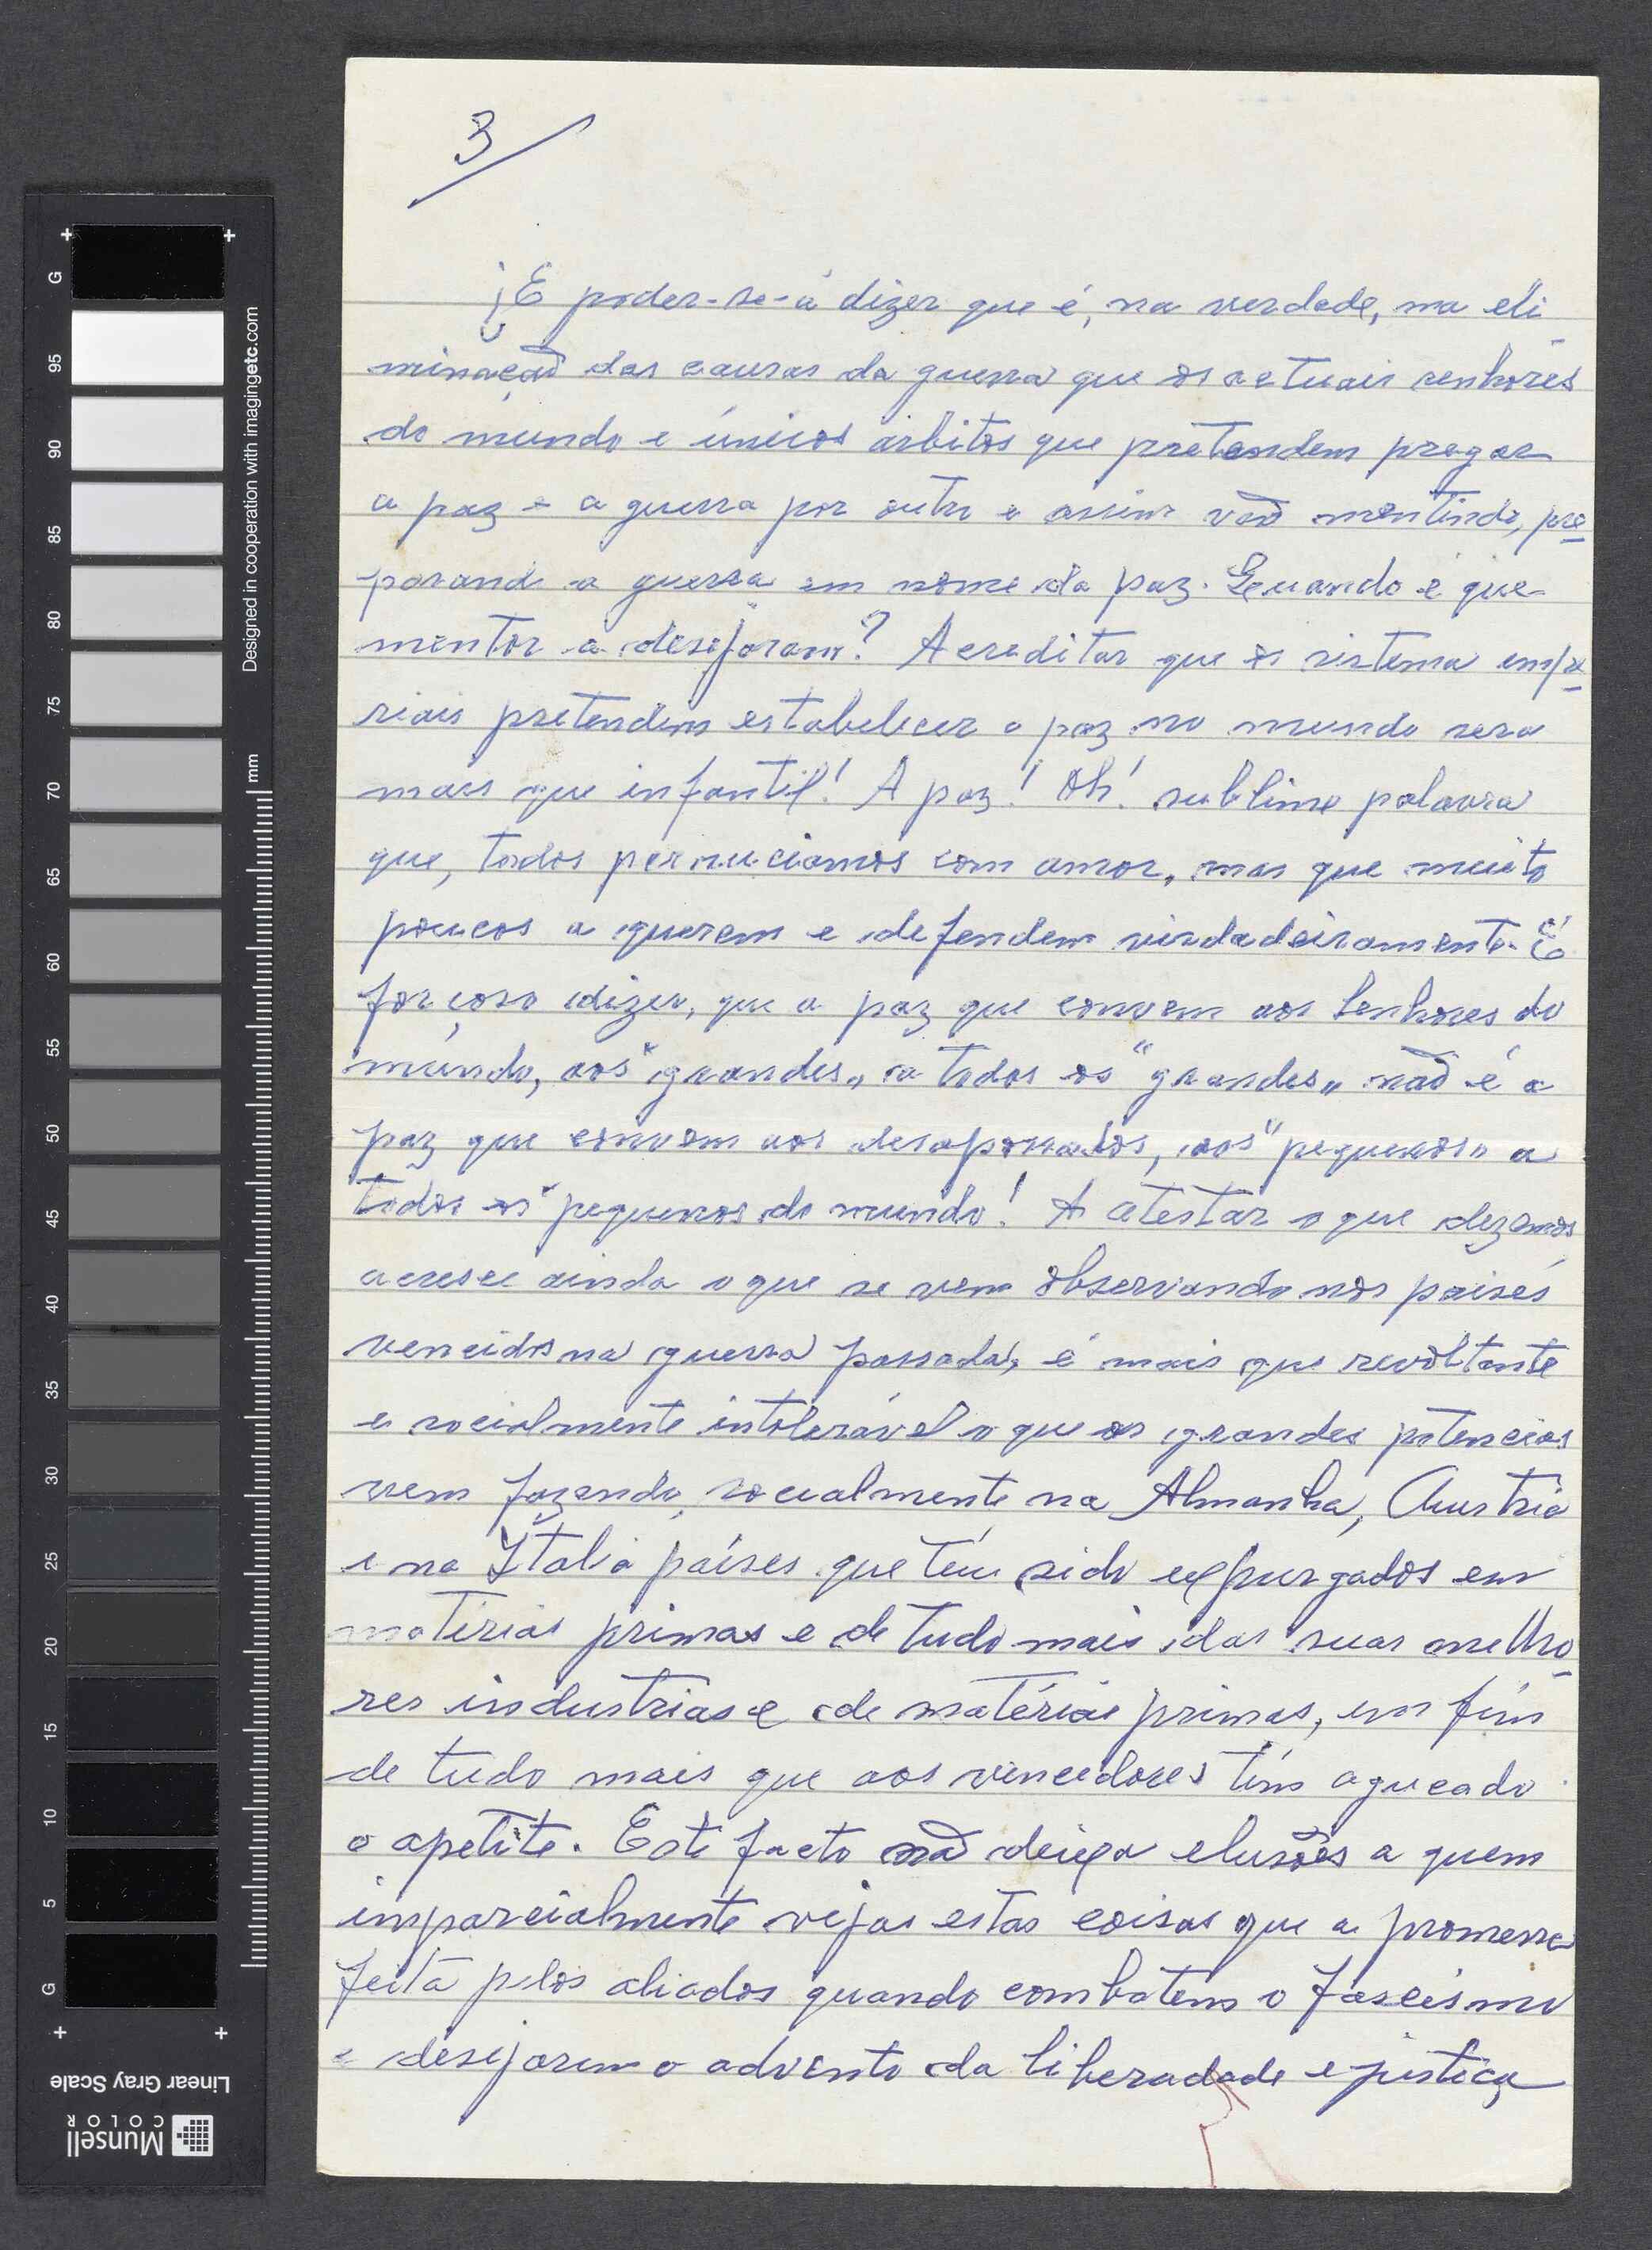 3
¿E poder-se-á dizer que é, na verdade, na eli
minação das causas da guerra que os actuais senhores
do mundo e únicos árbitos que pretendem pregar
a paz e a guerra por outro e assim vão mentindo, pre
parand a guerra em nome da paz. Quando é que
mentor a desejaram? Acreditar que os sistema empe
riais pretendem estabelecer a paz no mundo sera
mais que infantil! A paz! Ah! sublime palavra
que, todos pernuciamos com amor, mas que muito
poucos a querem e defendem verdadeiramente. É
forçoso dizer, que a paz que convem aos Senhores do
mundo, aos "grandes„ a todos os "grandes„ não é a
paz que convem aos desaporados, aos "pequenos„ a
todos os "pequenos do mundo! A atestar o que dezemos
acresce ainda o que se vem observando nos paises
vencidos na guerra passada, é mais que revoltante
e socialmente intolerável o que as grandes potencias
vem fazendo, socialmente na Almanha, Austria
e na Itália países que têm sido expurgados em
matérias primas e de tudo mais das suas melho
res industrias e de matérias primas, em fim
de tudo mais que aos vencedores têm agucado
o apetite. Este facto não deixa elusões a quem
imparcialmente vejas estas coisas que a promessa
feita pelos aliados quando combatem o fascismo
e desejarem o advento da liberadade e justiça
Designed in cooperation with imagingetc.com
mm
G 95 90 85 80 75 70 65 60 55 50 45 40 35 30 25 20 15 10 5 G
Linear Gray Scale
Munsell
COLOR